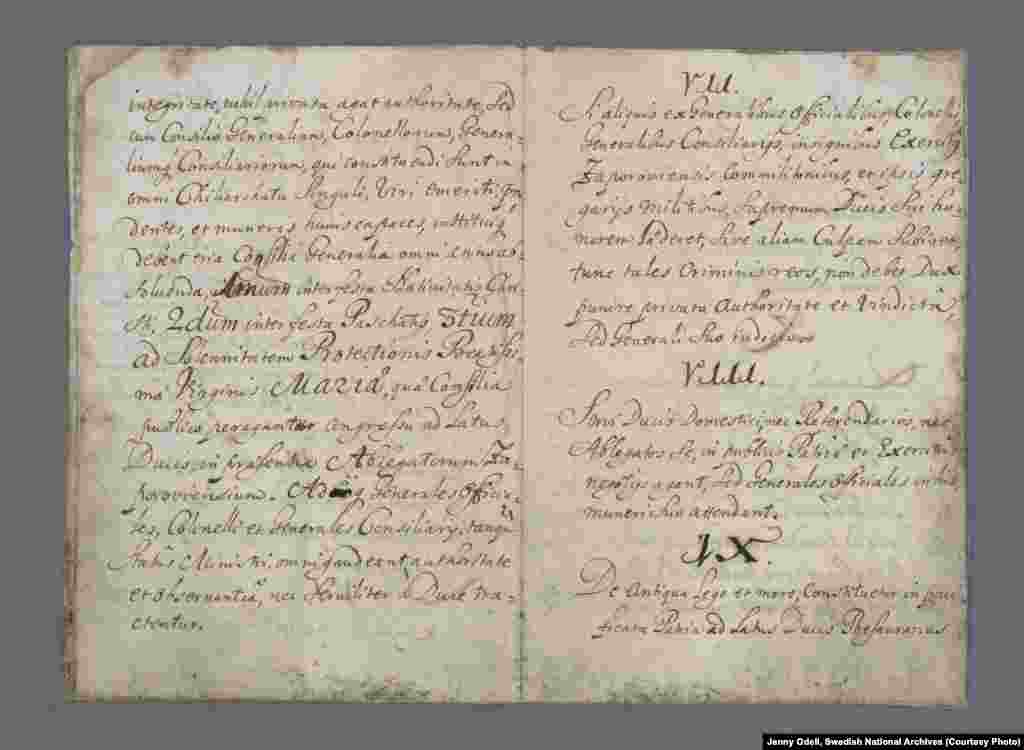 integritate, nihil privata agat authoritate, sed
cum Consilio Generalium, Colonellorum, Genera-
liumq Consiliariorum, qui constituendi sunt in
omni Chiliarchatu singuli, Viri emeriti, pru-
dentes, et muneris huius capaces, institui
debent tria Consilia Generalia omni anno ab-
soluenda, 1mum inter festa Nativitatis Chri-
sti, 2dum inter festa Paschatis, 3tium
ad Solennitatem Protectionis Beatissi-
mæ Virginis MARIÆ, quæ Consilia
publico peragantur congressu ad Latus
Ducis, in præsentia Ablegatorum Za-
poroviensium. Generales Officia-
les, Colonelli et Generales Consiliary, tanquã
status Ministri, omni gaudeant authoritate
et observantia, nec serviliter à Duce tra-
ctentur.
VII.
Si aliquis ex Generalibus Officialibus, Colonellis,
Generalibus Consiliarijs, insignibus Exercitus
Zaporoviensis Commilitonibus, et ipsis gre-
garijs militibus, supremum Ducis sui ho-
norem læderet, sive aliam Culpam subiret,
tunc tales Criminis reos, non debet Dux
punire privata Authoritate et Vindicta,
sed Generali suo iudicio
VIII.
Ducis Domestici, nec Referendarios, nec
Ablegatos in publicis Patriæ et Exercitus
negotijs agant, sed Generales Officiales
muneri suo attendant.
IX.
De antiqua Lege et more, Constituetur in
Patria ad Latus Ducis Thesaurarius
Jenny Odell, Swedish National Archives (Courtesy Photo)